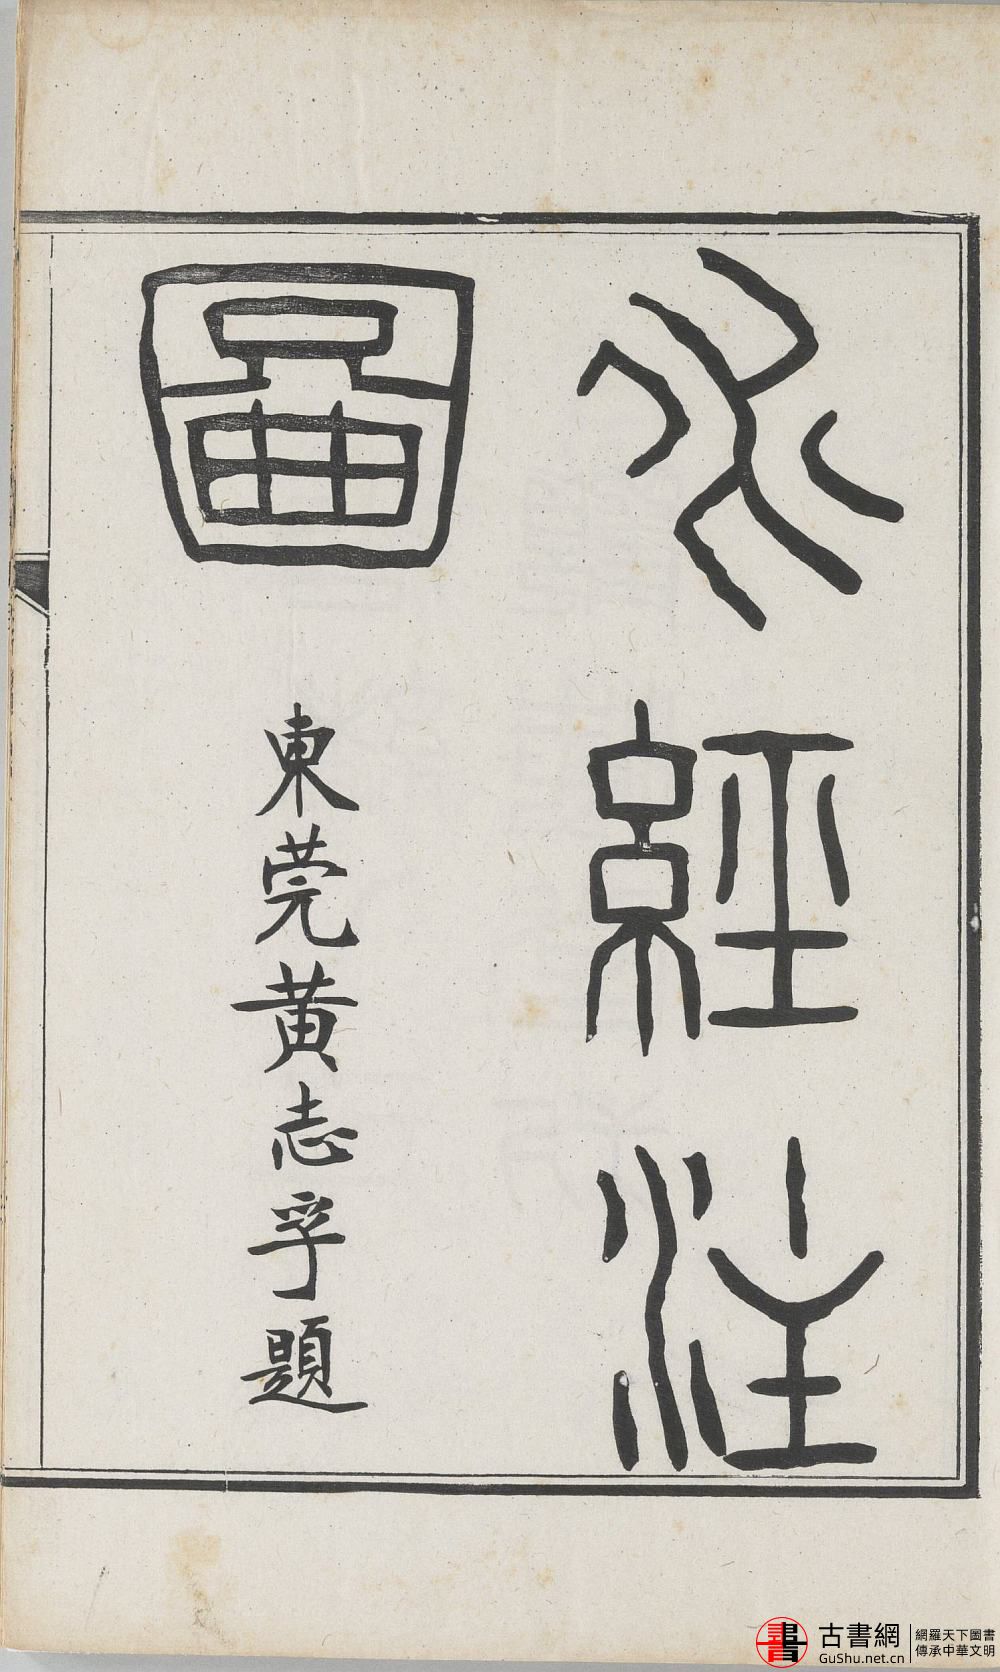 水經注
圖
東莞黄志孚題
古書網
GuShu.net.cn
網羅天下圖書
傳承中華文明